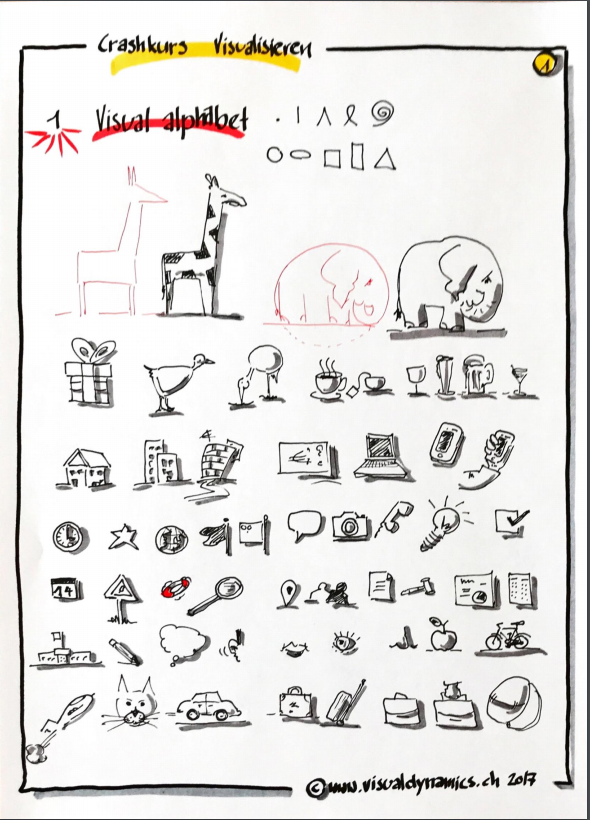 Crashkurs Visualisieren
1
1 Visual alphabet
14
©www.visualdynamics.ch 2017